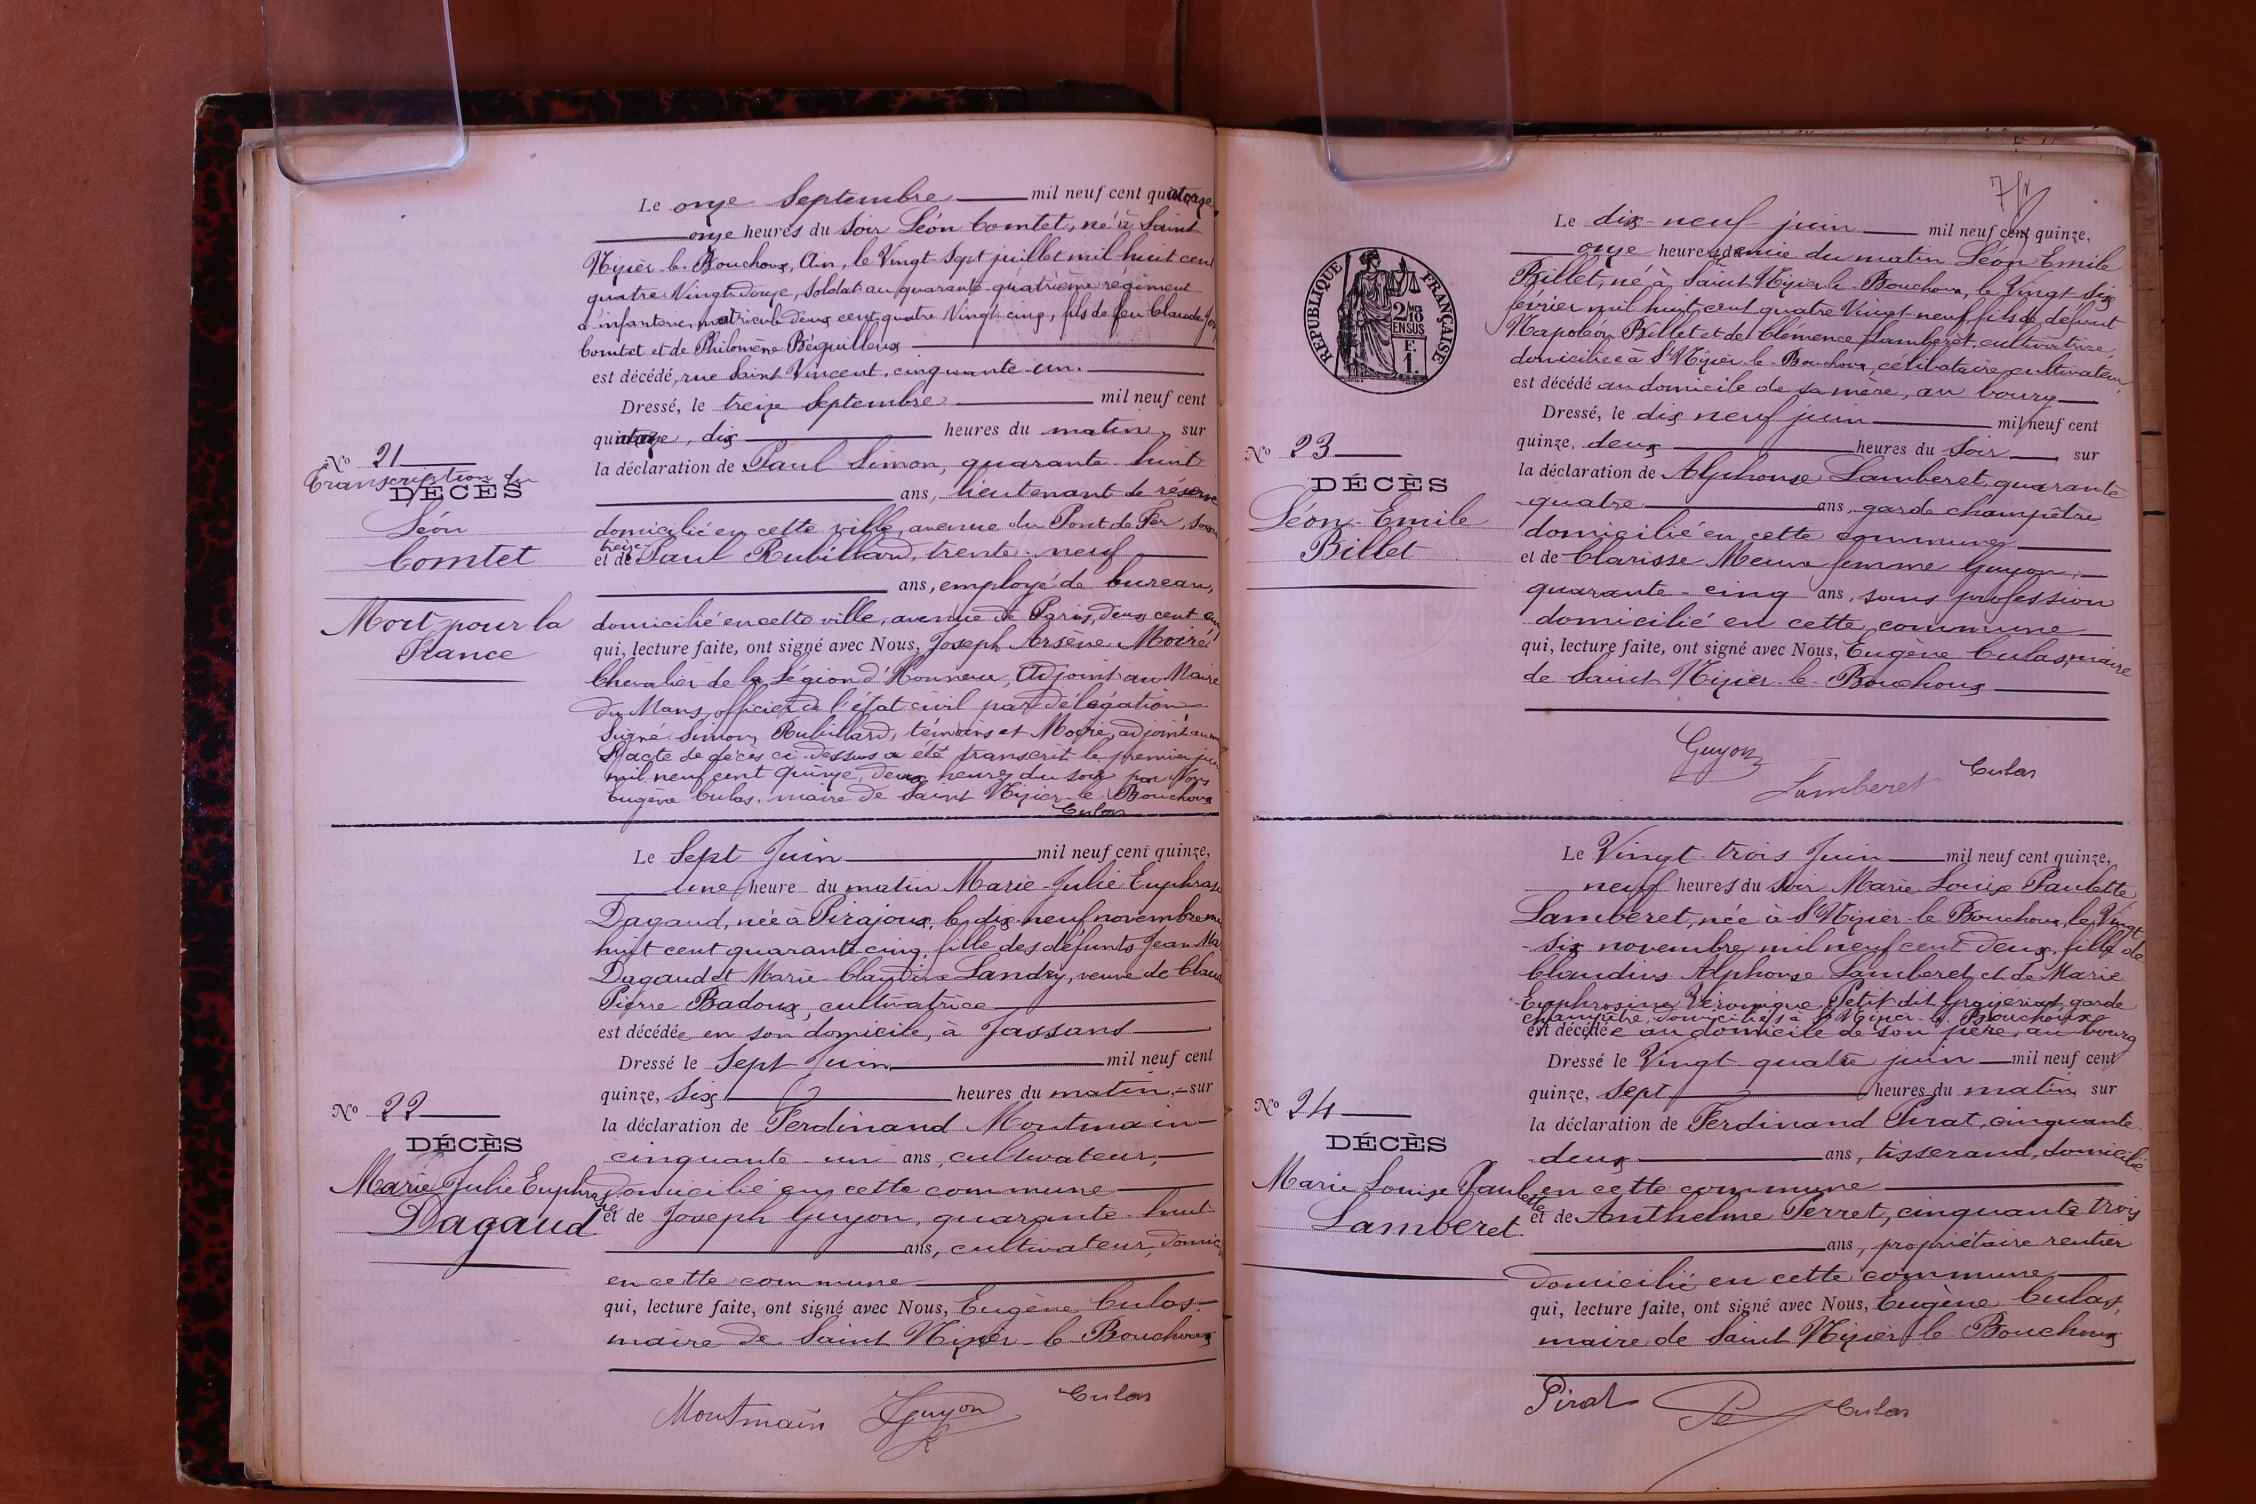 Le onze Septembre mil neuf cent quatorze,
onze heures du soir Léon Comtet, né à Saint
Nizier-le-Bouchoux, Ain, le Vingt-Sept juillet mil huit cent
quatre Vingt-douze, Soldat au quarante-quatrième régiment
d'infanterie, matricule deux cent quatre Vingt-cinq, fils de feu Claude
Comtet et de Philomène Béquilleux
est décédé, rue Saint Vincent, cinquante-un.
Dressé, le treize Septembre mil neuf cent
quatorze, dix heures du matin, sur
la déclaration de Paul Simon, quarante-huit
ans, lieutenant de réserve
domicilié en cette ville, avenue du Pont de Fer,
treize
et de Paul Rubillard, trente-neuf
ans, employé de bureau,
domicilié en cette ville, avenue de Paris, deux cent
qui, lecture faite, ont signé avec Nous, Joseph Arsène Moiré
Chevalier de la Légion d'Honneur, Adjoint au Maire
du Mans, officier de l'état civil par délégation
Signé: Simon, Rubillard, témoins et Moiré, adjoint au
L'acte de décès ci-dessus a été transcrit le premier juin
mil neuf cent quinze, deux heures du soir par Nous
Eugène Culas, maire de Saint Nizier-le-Bouchoux
Culas
No 21
Transcription du
DÉCÈS
Léon
Comtet
Mort pour la
France
Le Sept Juin mil neuf cent quinze,
une heure du matin Marie-Julie Euphrasie
Dagaud, née à Pirajoux, le dix-neuf novembre mil
huit cent quarante cinq, fille des défunts Jean Ma
Dagaud et Marie-Claudine Landry, veuve de Claude
Pierre Badoux, cultivatrice
est décédée en son domicile, à Jassans
Dressé le Sept Juin mil neuf cent
quinze, six heures du matin, sur
la déclaration de Ferdinand Montmain
cinquante-un ans, cultivateur,
domicilié en cette commune
et de Joseph Guyon, quarante-huit
ans, cultivateur, domicilié
en cette commune
qui, lecture faite, ont signé avec Nous, Eugène Culas
maire de Saint Nizier-le-Bouchoux
Montmain Guyon Culas
No 22
DÉCÈS
Marie Julie Euphrasie
Dagaud
RÉPUBLIQUE FRANÇAISE
2/10 EN SUS
F. 1.
Le dix-neuf juin mil neuf cent quinze,
onze heures demie du matin Léon Emile
Billet, né à Saint Nizier-le-Bouchoux, le Vingt-Six
février mil huit cent quatre Vingt-neuf, fils de défunt
Napoléon Billet et de Clémence Lamberet, cultivatrice,
domiciliée à St Nizier-le-Bouchoux, célibataire, cultivateur,
est décédé au domicile de sa mère, au bourg
Dressé, le dix neuf juin mil neuf cent
quinze, deux heures du soir, sur
la déclaration de Alphonse Lamberet, quarante
quatre ans, garde champêtre
domicilié en cette commune
et de Clarisse femme Guyon,
quarante-cinq ans, sans profession
domicilié en cette commune
qui, lecture faite, ont signé avec Nous, Eugène Culas, maire
de Saint Nizier-le-Bouchoux
Guyon Lamberet Culas
No 23
DÉCÈS
Léon-Emile
Billet
Le Vingt-trois Juin mil neuf cent quinze,
neuf heures du soir Marie-Louise Paulette
Lamberet, née à St Nizier-le-Bouchoux, le Vingt
-six novembre mil neuf cent deux, fille de
Claudius Alphonse Lamberet et de Marie
Euphrosine Véronique Petit dit garde
champêtre, domiciliés à St Nizier-le-Bouchoux
est décédée au domicile de son père, au bourg
Dressé le Vingt quatre juin mil neuf cent
quinze, sept heures du matin sur
la déclaration de Ferdinand Pirat, cinquante
deux ans, tisserand, domicilié
en cette commune
et de Anthelme Perret, cinquante trois
ans, propriétaire rentier
domicilié en cette commune
qui, lecture faite, ont signé avec Nous, Eugène Culas,
maire de Saint Nizier-le-Bouchoux
Pirat Pe Culas
No 24
DÉCÈS
Marie Louise Paulette
Lamberet